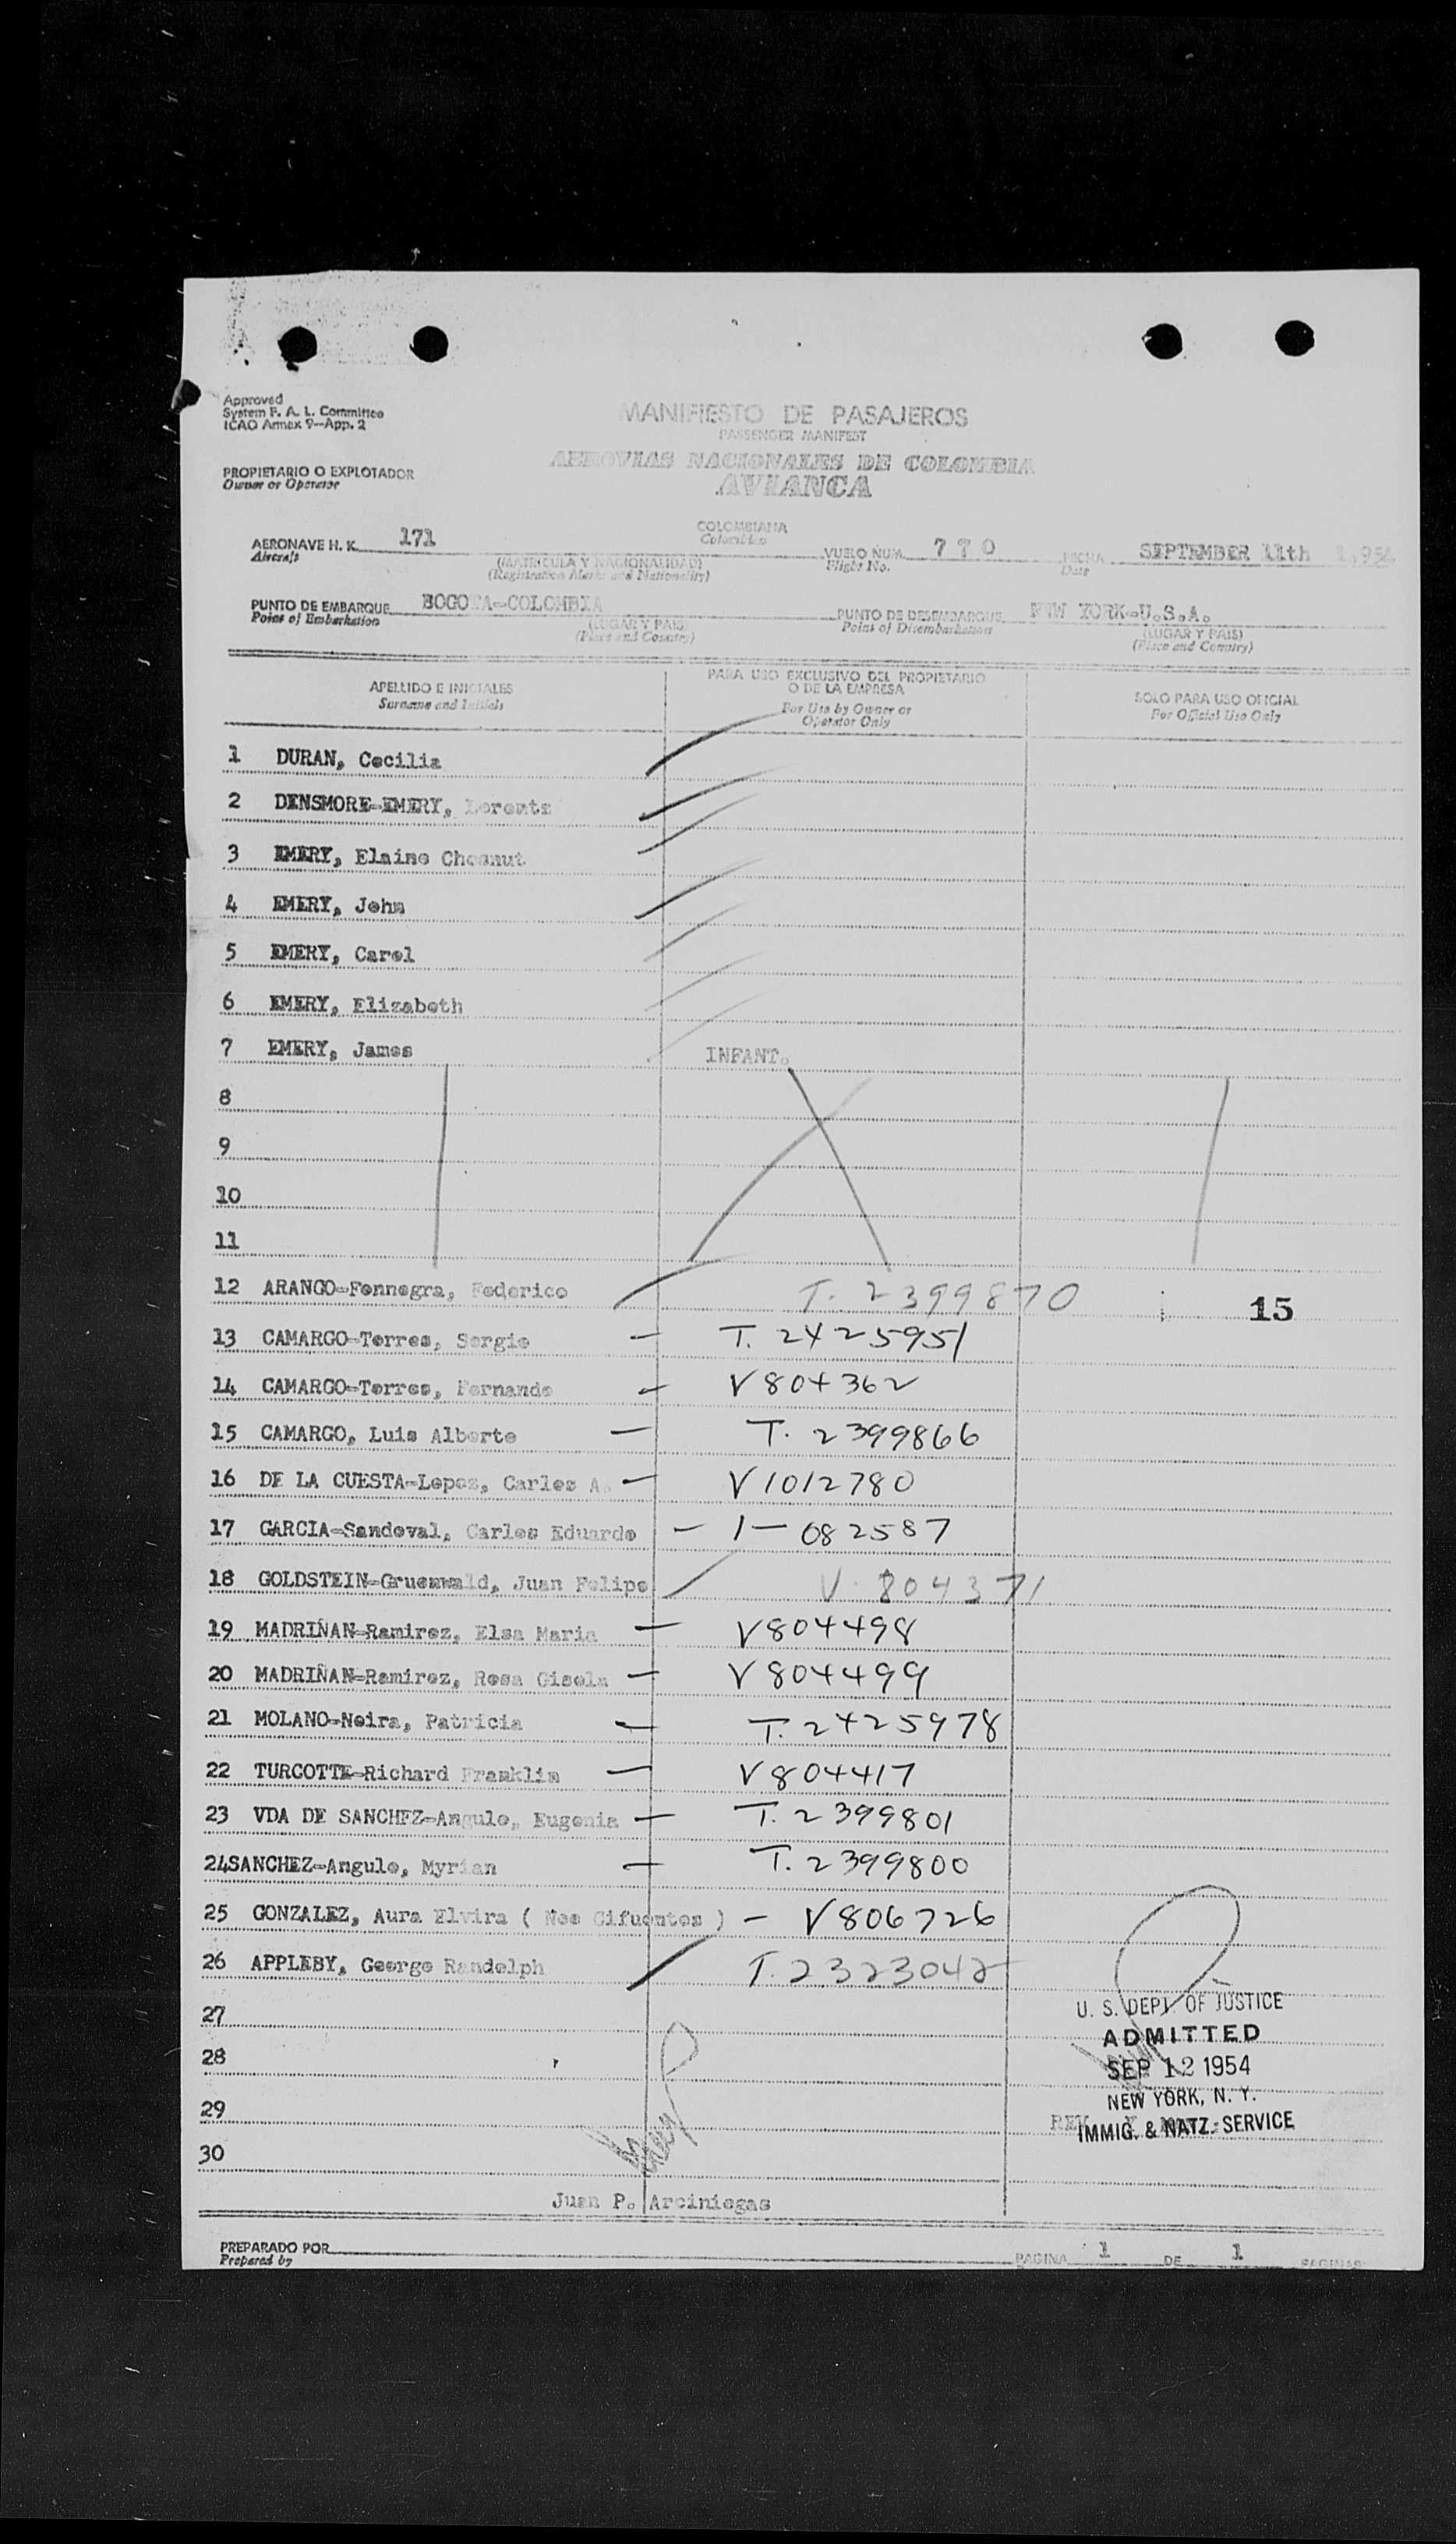 Approved
System F. A. L. Committee
ICAO Annex 9—App. 2
MANIFIESTO DE PASAJEROS
PASSENGER MANIFEST
AEROVIAS NACIONALES DE COLOMBIA
AVIANCA
PROPIETARIO O EXPLOTADOR
Owner or Operator
AERONAVE H. K. 171 COLOMBIANA VUELO NUM. 770 FECHA SEPTEMBER 11th 1.954
Aircraft Colombian Flight No. Date
(MATRICULA Y NACIONALIDAD)
(Registration Marks and Nationality)
PUNTO DE EMBARQUE BOGOTA-COLOMBIA PUNTO DE DESEMBARQUE NEW YORK-U.S.A.
Point of Embarkation (LUGAR Y PAIS) Point of Disembarkation (LUGAR Y PAIS)
(Place and Country) (Place and Country)
APELLIDO E INICIALES PARA USO EXCLUSIVO DEL PROPIETARIO SOLO PARA USO OFICIAL
O DE LA EMPRESA
Surname and Initials For Use by Owner or For Official Use Only
Operator Only
1 DURAN, Cecilia
2 DENSMORE-EMERY, Lorentz
3 EMERY, Elaine Chesnut
4 EMERY, John
5 EMERY, Carol
6 EMERY, Elizabeth
7 EMERY, James INFANT.
8
9
10
11
12 ARANGO-Fonnegra, Federico T. 2399870 15
13 CAMARGO-Torres, Sergio — T. 2425951
14 CAMARGO-Torres, Fernando — V804362
15 CAMARGO, Luis Alberto — T. 2399866
16 DE LA CUESTA-Lopez, Carlos A. — V1012780
17 GARCIA-Sandoval, Carlos Eduardo — 1-082587
18 GOLDSTEIN-Gruenwald, Juan Felipe V. 804371
19 MADRIÑAN-Ramirez, Elsa Maria — V804498
20 MADRIÑAN-Ramirez, Rosa Gisela — V804499
21 MOLANO-Neira, Patricia — T. 2425978
22 TURCOTTE-Richard Franklin — V804417
23 VDA DE SANCHEZ-Angulo, Eugenia — T. 2399801
24 SANCHEZ-Angulo, Myrian — T. 2399800
25 GONZALEZ, Aura Elvira ( Nee Cifuentes ) — V806726
26 APPLEBY, George Randolph T. 2323042
27
28
29
30
U. S. DEPT. OF JUSTICE
ADMITTED
SEP 12 1954
NEW YORK, N. Y.
IMMIG. & NATZ. SERVICE
Juan P. Arciniegas
PREPARADO POR PAGINA 1 DE 1 PAGINAS
Prepared by